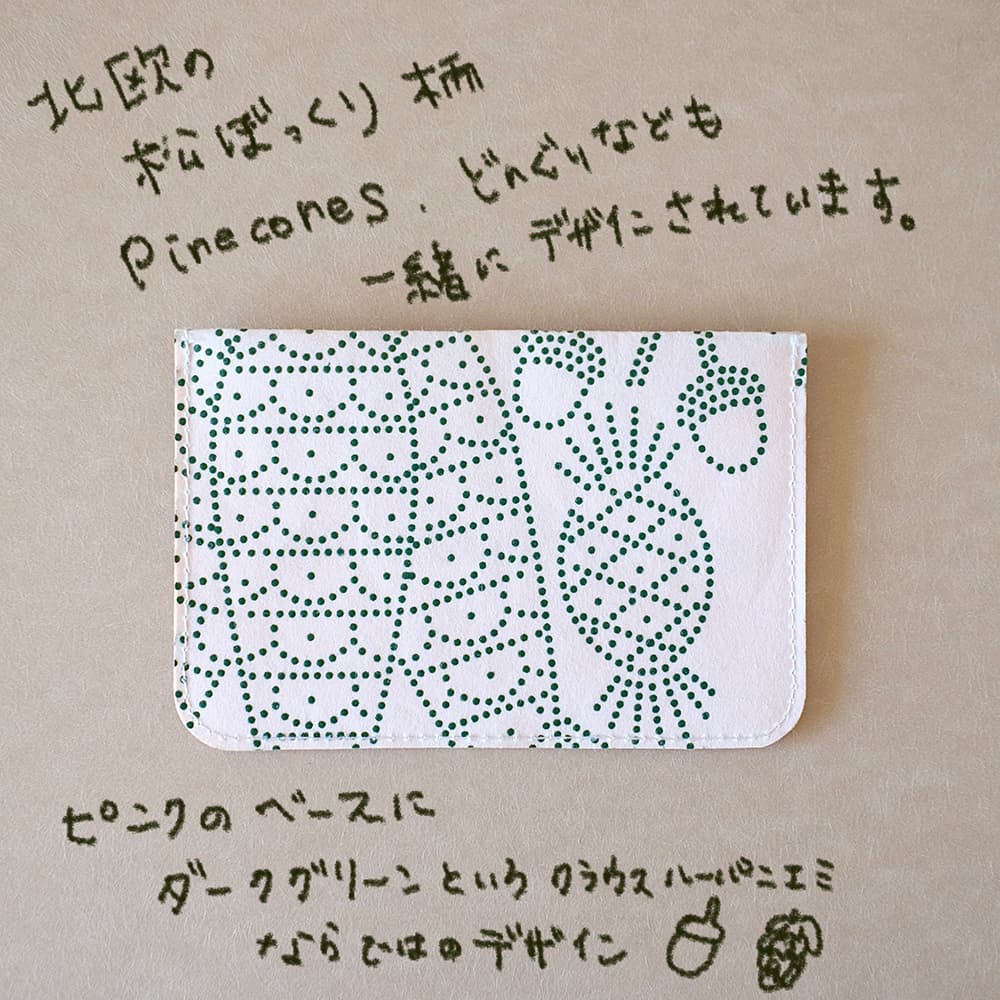 北欧の
松ぼっくり柄
Pinecones. どんぐりなども
一緒に デザインされています。
ピンクの ベースに
ダークグリーンという クラウスハーパニエミ
ならではのデザイン